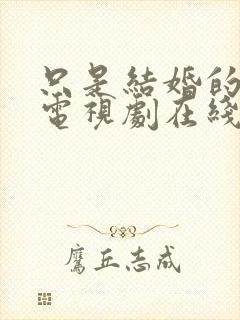 只是結婚的
電視劇在綫
鷹丘志成